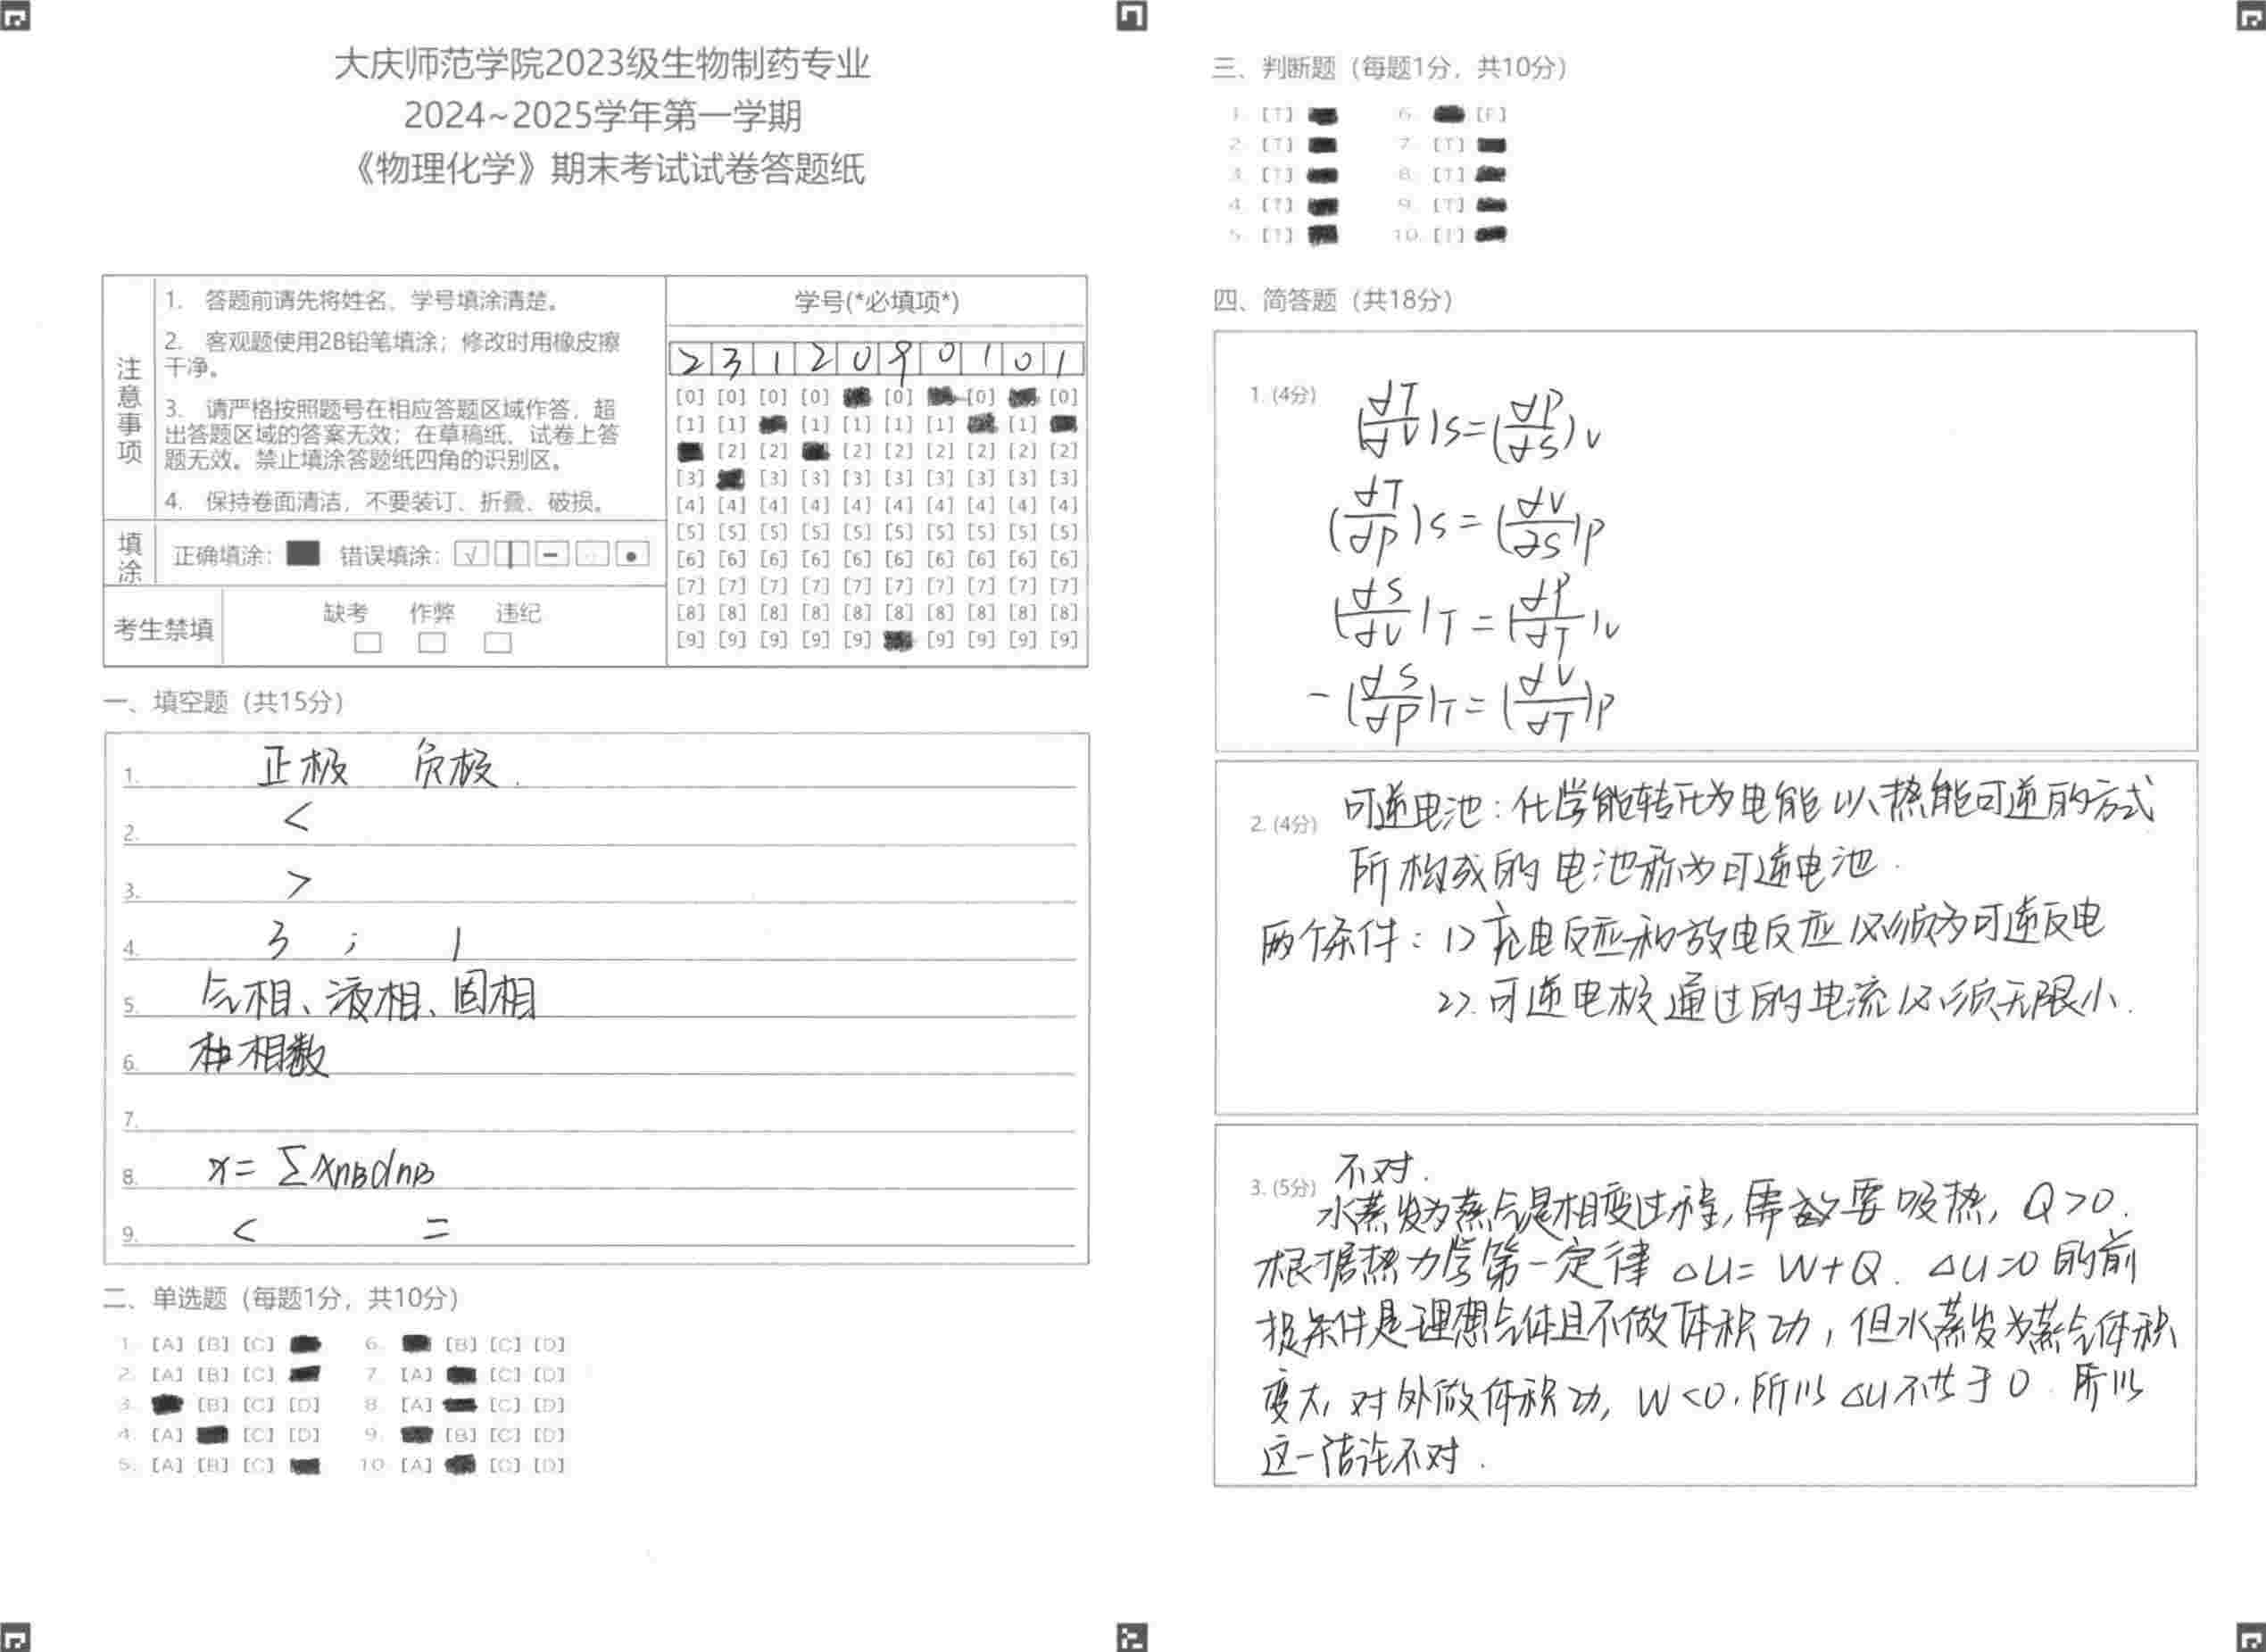 大庆师范学院2023级生物制药专业
2024~2025学年第一学期
《物理化学》期末考试试卷答题纸
注意事项
1. 答题前请先将姓名、学号填涂清楚。
2. 客观题使用2B铅笔填涂；修改时用橡皮擦
干净。
3. 请严格按照题号在相应答题区域作答，超
出答题区域的答案无效；在草稿纸、试卷上答
题无效。禁止填涂答题纸四角的识别区。
4. 保持卷面清洁，不要装订、折叠、破损。
填涂
正确填涂： 错误填涂：
考生禁填
缺考 作弊 违纪
学号(*必填项*)
2 3 1 2 0 9 0 1 0 1
[0] [0] [0] [0] [0] [0] [0]
[1] [1] [1] [1] [1] [1] [1]
[2] [2] [2] [2] [2] [2] [2] [2]
[3] [3] [3] [3] [3] [3] [3] [3] [3]
[4] [4] [4] [4] [4] [4] [4] [4] [4] [4]
[5] [5] [5] [5] [5] [5] [5] [5] [5] [5]
[6] [6] [6] [6] [6] [6] [6] [6] [6] [6]
[7] [7] [7] [7] [7] [7] [7] [7] [7] [7]
[8] [8] [8] [8] [8] [8] [8] [8] [8] [8]
[9] [9] [9] [9] [9] [9] [9] [9] [9]
一、填空题（共15分）
1. 正极 负极.
2. <
3. >
4. 3 ; 1
5. 气相、液相、固相
6. 相数
7.
8. x= ∑XnBdnB
9. < =
二、单选题（每题1分，共10分）
1. [A] [B] [C] 6. [B] [C] [D]
2. [A] [B] [C] 7. [A] [C] [D]
3. [B] [C] [D] 8. [A] [C] [D]
4. [A] [C] [D] 9. [B] [C] [D]
5. [A] [B] [C] 10. [A] [C] [D]
三、判断题（每题1分，共10分）
1. [T] 6. [F]
2. [T] 7. [T]
3. [T] 8. [T]
4. [T] 9. [T]
5. [T] 10. [T]
四、简答题（共18分）
1. (4分) (∂T/∂V)s=(∂P/∂S)v
(∂T/∂P)s=(∂V/∂S)p
(∂S/∂V)T=(∂P/∂T)v
-(∂S/∂P)T=(∂V/∂T)p
2. (4分) 可逆电池：化学能转化为电能以热能可逆的方式
所构成的电池称为可逆电池.
两个条件：1> 充电反应和放电反应必须为可逆反电
2>.可逆电极通过的电流必须无限小.
3. (5分) 不对.
水蒸发为蒸气是相变过程，需要吸热，Q>0.
根据热力学第一定律 △U= W+Q. △U=0的前
提条件是理想气体且不做体积功，但水蒸发为蒸气体积
变大，对外做体积功，W<0.所以△U不等于0.所以
这一结论不对.